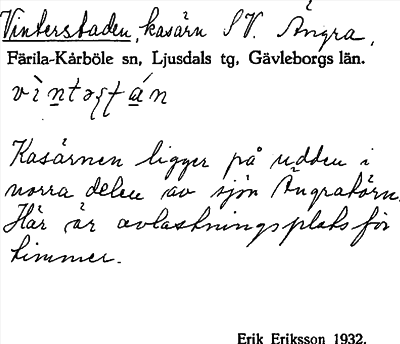 Vinterstaden, kasärn SV. Ängra,
Färila-Kårböle sn, Ljusdals tg, Gävleborgs län.
vìntəʂʈán
Kasärnen ligger på udden i
norra delen av sjön Ängratörn.
Här är avlastningsplats för
timmer.
Erik Eriksson 1932.